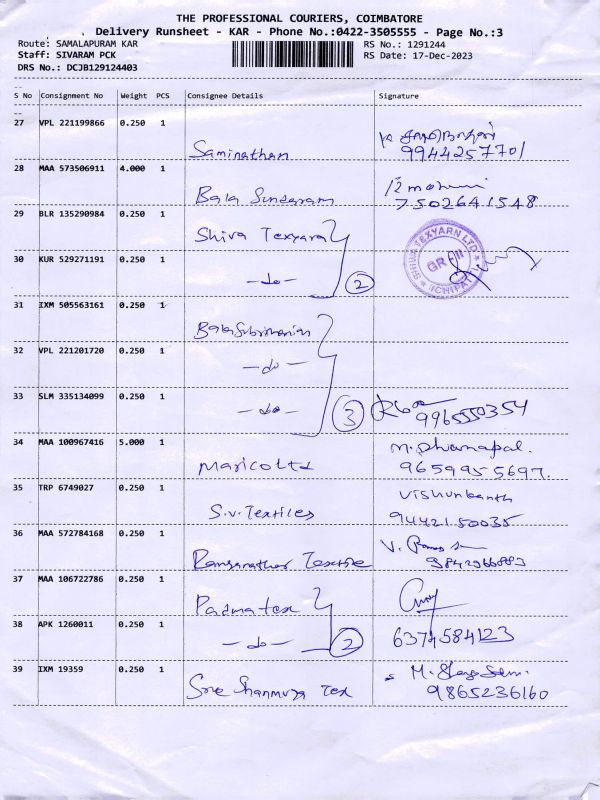 THE PROFESSIONAL COURIERS, COIMBATORE
Delivery Runsheet - KAR - Phone No.:0422-3505555 - Page No.:3
Route: SAMALAPURAM KAR
RS No.: 1291244
Staff: SIVARAM PCK
RS Date: 17-Dec-2023
DRS No.: DCJB129124403
S No Consignment No Weight PCS Consignee Details Signature
27 VPL 221199866 0.250 1
Saminathan 9944257701
28 MAA 573506911 4.000 1
Bala Sundaram 7502641548
29 BLR 135290984 0.250 1
Shiva Texyarn
SHIVA TEXYARN LTD
30 KUR 529271191 0.250 1
-do- 2
31 IXM 505563161 0.250 1
BalaSubramanian
32 VPL 221201720 0.250 1
-do-
33 SLM 335134099 0.250 1
-do- 3 9965550354
34 MAA 100967416 5.000 1
Marico Ltd M. Dhanapal.
9659955697.
35 TRP 6749027 0.250 1
S.V. Textiles Vishnukanth
94421.50035
36 MAA 572784168 0.250 1
Ranganathar Textile
37 MAA 106722786 0.250 1
Padma tex
38 APK 1260011 0.250 1
-do- 2 6374584123
39 IXM 19359 0.250 1
Sree Shanmuga Tex 9865236160